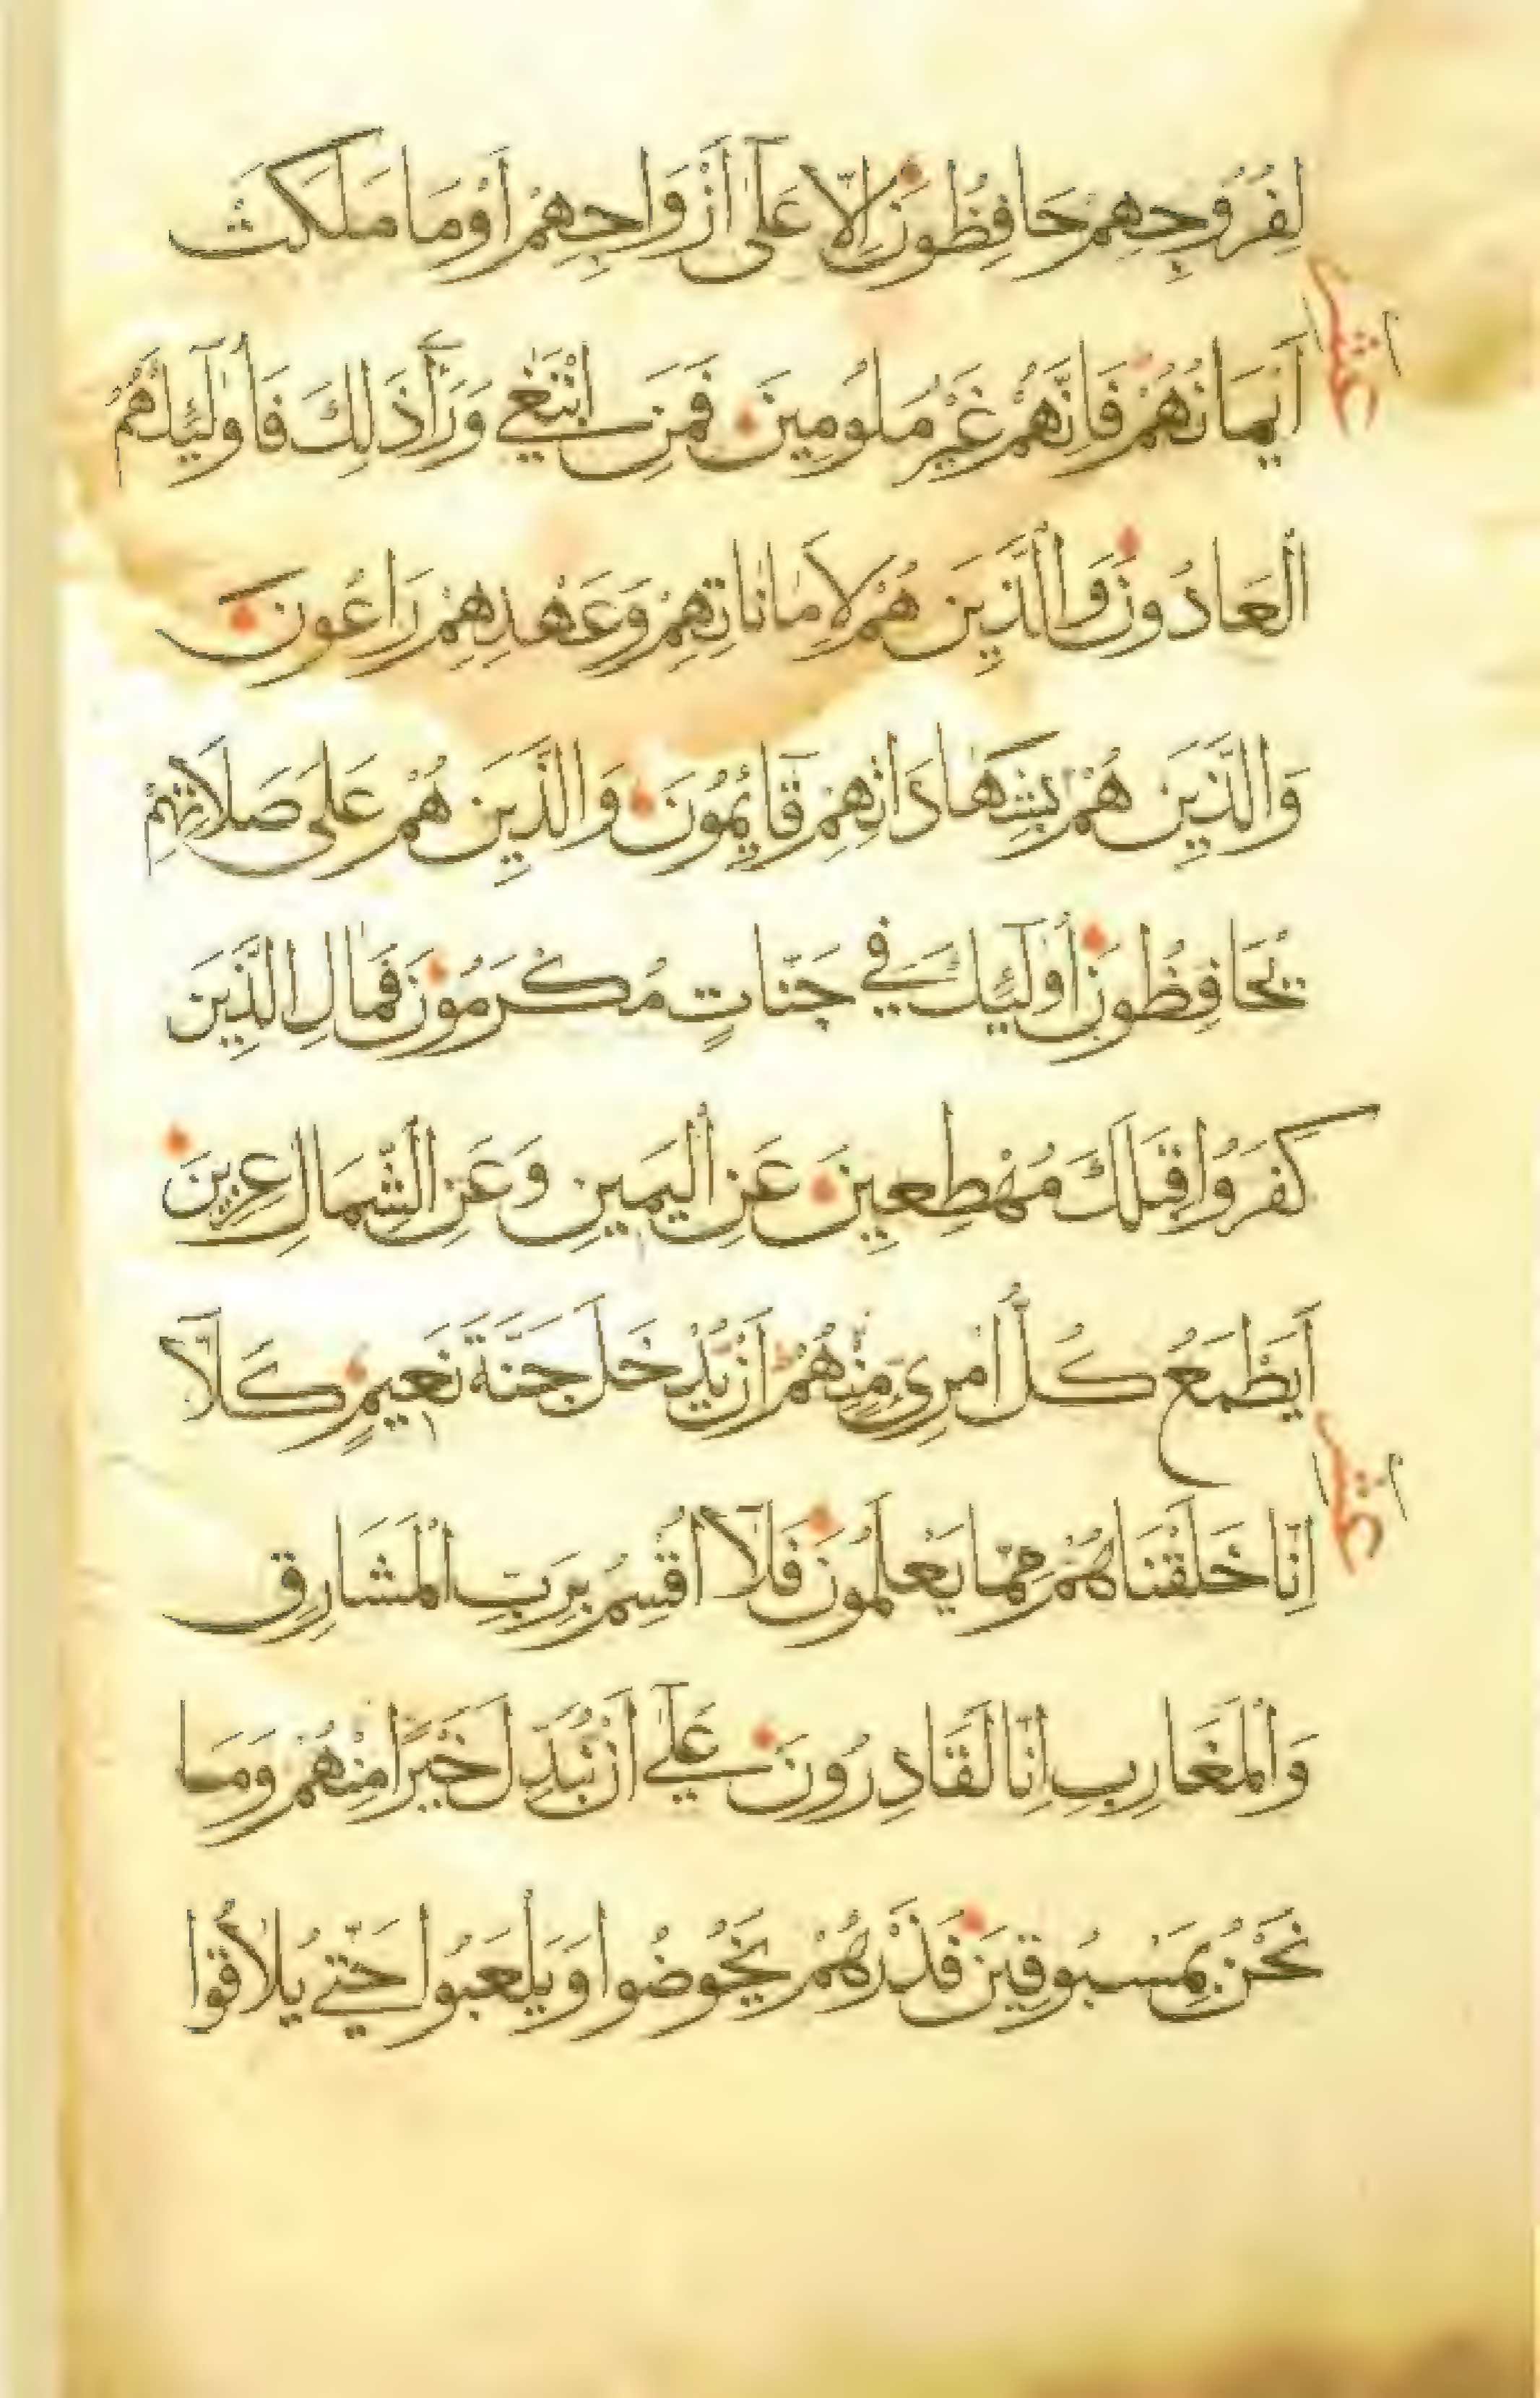 لِفُرُوجِهِمْ حَافِظُونَ اِلَّا عَلٰٓى اَزْوَاجِهِمْ اَوْ مَا مَلَكَتْ
اَيْمَانُهُمْ فَاِنَّهُمْ غَيْرُ مَلُومِينَ فَمَنِ ابْتَغٰى وَرَآءَ ذٰلِكَ فَاُولٰٓئِكَ هُمُ
الْعَادُونَ وَالَّذِينَ هُمْ لِاَمَانَاتِهِمْ وَعَهْدِهِمْ رَاعُونَ
وَالَّذِينَ هُمْ بِشَهَادَاتِهِمْ قَآئِمُونَ وَالَّذِينَ هُمْ عَلَى صَلَاتِهِمْ
يُحَافِظُونَ اُولٰٓئِكَ فِي جَنَّاتٍ مُكْرَمُونَ فَمَالِ الَّذِينَ
كَفَرُوا قِبَلَكَ مُهْطِعِينَ عَنِ الْيَمِينِ وَعَنِ الشِّمَالِ عِزِينَ
اَيَطْمَعُ كُلُّ امْرِئٍ مِنْهُمْ اَنْ يُدْخَلَ جَنَّةَ نَعِيمٍ كَلَّآ
اِنَّا خَلَقْنَاهُمْ مِمَّا يَعْلَمُونَ فَلَآ اُقْسِمُ بِرَبِّ الْمَشَارِقِ
وَالْمَغَارِبِ اِنَّا لَقَادِرُونَ عَلٰٓى اَنْ نُبَدِّلَ خَيْرًا مِنْهُمْ وَمَا
نَحْنُ بِمَسْبُوقِينَ فَذَرْهُمْ يَخُوضُوا وَيَلْعَبُوا حَتّٰى يُلَاقُوا